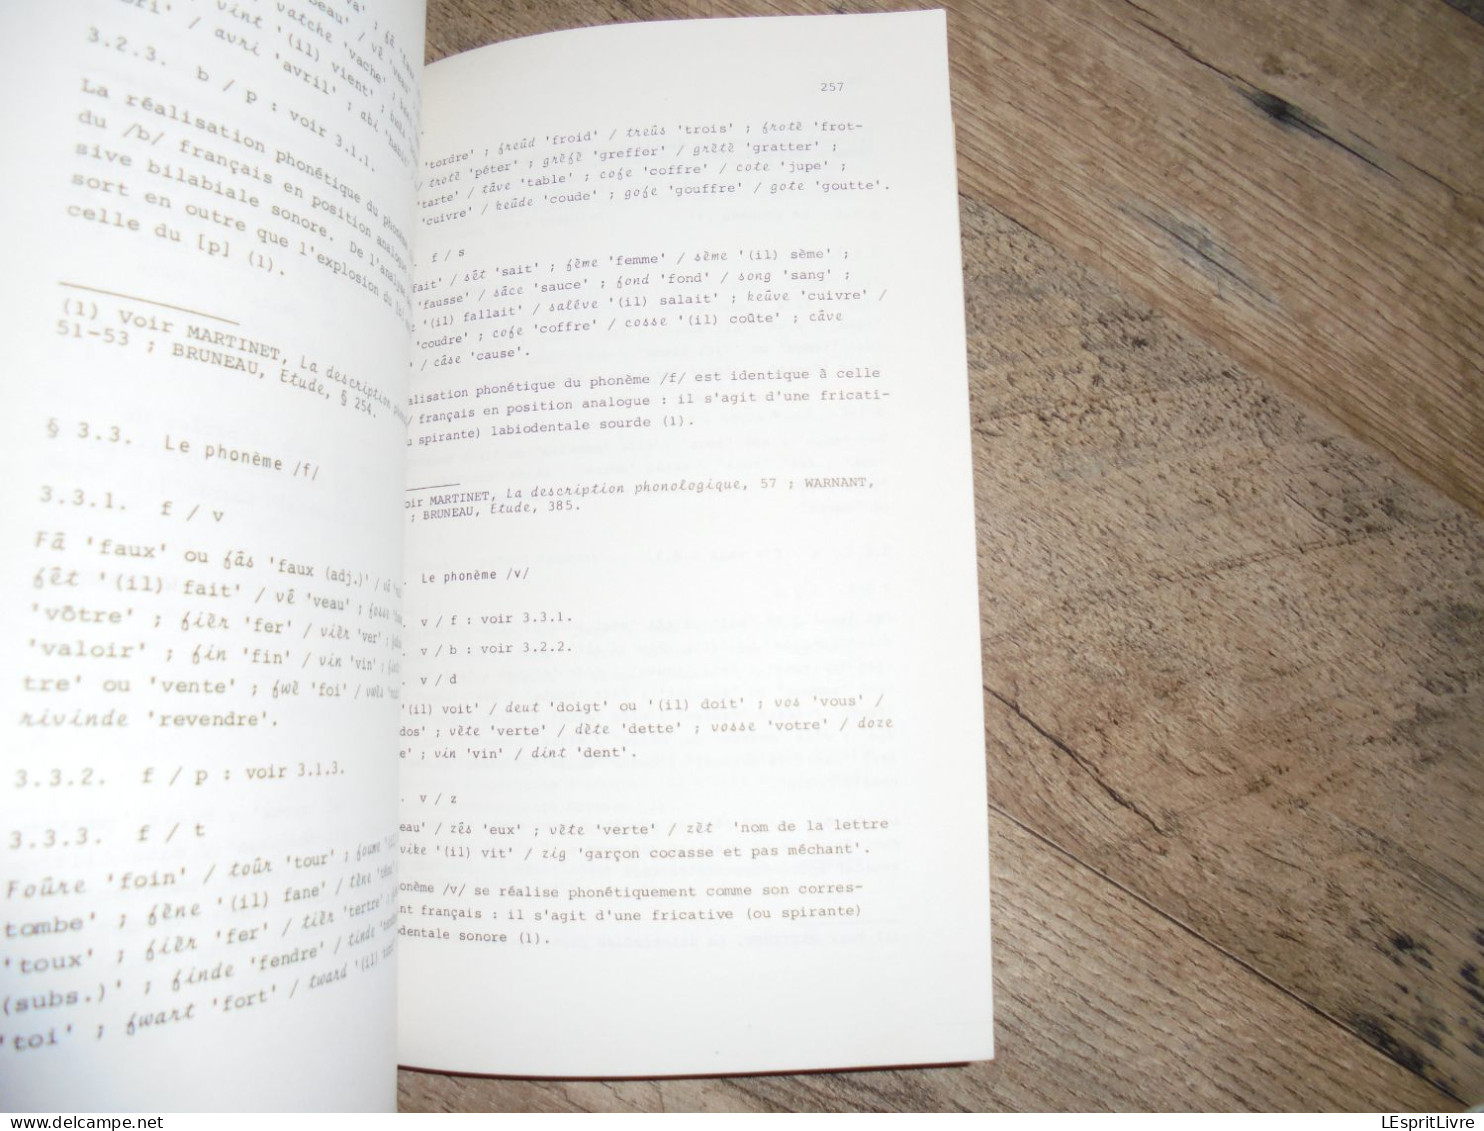 vatche 'vache'
vint '(il) vient'
/ avri 'avril' ; abi
3.2.3. b / p : voir 3.1.1.
La réalisation phonétique du
du /b/ français en position analogue
sive bilabiale sonore. De l'analyse
sort en outre que l'explosion du
celle du [p] (1).
(1) Voir MARTINET, La description
51-53 ; BRUNEAU, Etude, § 254.
§ 3.3. Le phonème /f/
3.3.1. f / v
Fâ 'faux' ou fâs 'faux (adj.)' /
fêt '(il) fait' / vê 'veau' ;
'vôtre' ; fiêr 'fer' / viêr 'ver' ;
'valoir' ; fin 'fin' / vin 'vin' ;
tre' ou 'vente' ; fwè 'foi' /
rivinde 'revendre'.
3.3.2. f / p : voir 3.1.3.
3.3.3. f / t
Foûre 'foin' / toûr 'tour' ;
tombe' ; fène '(il) fane' / tène
'toux' ; fiêr 'fer' / tiêr 'tertre' ;
(subs.)' ; finde 'fendre' / tinde
'toi' ; fwart 'fort' / tward '(il)
257
'tordre' ; freûd 'froid' / treûs 'trois' ; frotè 'frot-
/ trotè 'péter' ; grèfè 'greffer' / grètè 'gratter' ;
'tarte' / tâve 'table' ; cofe 'coffre' / cote 'jupe' ;
'cuivre' / keûde 'coude' ; gofe 'gouffre' / gote 'goutte'.
f / s
fait' / sêt 'sait' ; fème 'femme' / sème '(il) sème' ;
'fausse' / sâce 'sauce' ; fond 'fond' / song 'sang' ;
'(il) fallait' / saléve '(il) salait' ; keûve 'cuivre' /
'coudre' ; cofe 'coffre' / cosse '(il) coûte' ; câve
' / câse 'cause'.
alisation phonétique du phonème /f/ est identique à celle
/ français en position analogue : il s'agit d'une fricati-
u spirante) labiodentale sourde (1).
oir MARTINET, La description phonologique, 57 ; WARNANT,
; BRUNEAU, Etude, 385.
. Le phonème /v/
. v / f : voir 3.3.1.
. v / b : voir 3.2.2.
. v / d
'(il) voit' / deut 'doigt' ou '(il) doit' ; vos 'vous' /
dos' ; vète 'verte' / dète 'dette' ; vosse 'votre' / doze
e' ; vin 'vin' / dint 'dent'.
. v / z
eau' / zês 'eux' ; vète 'verte' / zèt 'nom de la lettre
vike '(il) vit' / zig 'garçon cocasse et pas méchant'.
onème /v/ se réalise phonétiquement comme son corres-
nt français : il s'agit d'une fricative (ou spirante)
odentale sonore (1).
delcampe.net
LEspritLivre